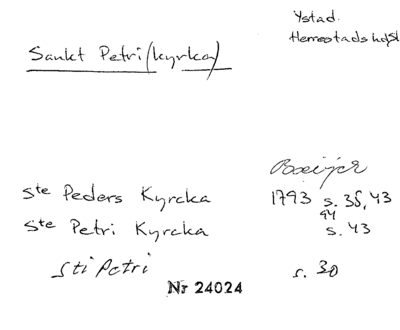 Ystad.
Herrestads hd, Sk
Sankt Petri (kyrka)
Ste Peders Kyrcka 1793 s. 35, 43
94
Ste Petri Kyrcka s. 43
Sti Petri s. 30
Nr 24024